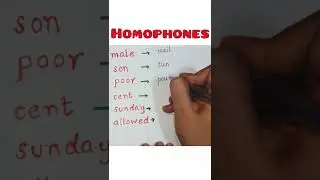 HOMOPHONES
male → mail
son → sun
poor →
cent →
sunday →
allowed →
son
poor
cent
sunday